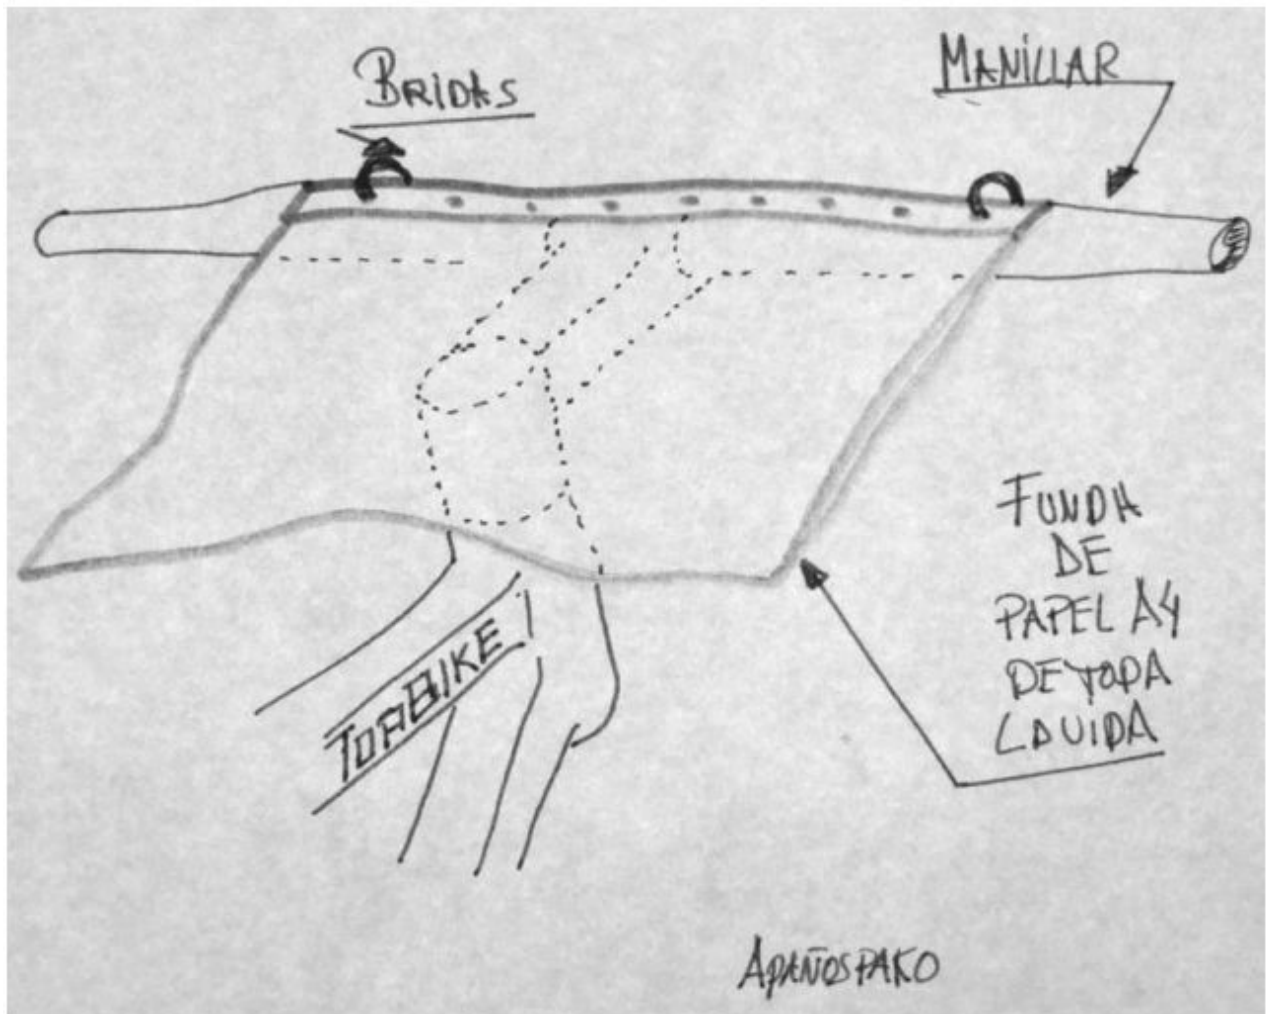 BRIDAS
MANILLAR
FUNDA
DE
PAPEL A4
DE TODA
LAVIDA
TORBIKE
APAÑOSPAKO